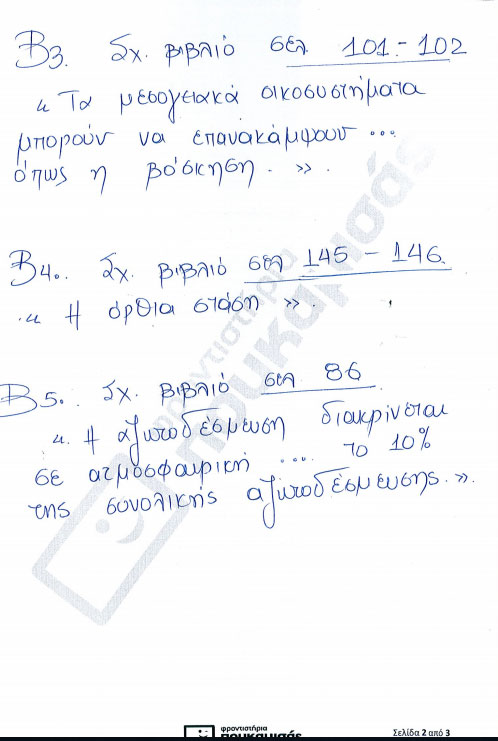 Β3. Σχ. βιβλιό σελ 101-102
« Τα μεσογειακά οικοσυστήματα
μπορούν να επανακάμψουν ...
όπως η βόσκηση. ».
Β4. Σχ. βιβλιό σελ 145 - 146.
« Η όρθια στάση ».
Β5. Σχ. βιβλιό σελ 86
« Η αζωτοδέσμευση διακρίνεται
σε ατμοσφαιρική .... το 10%
της συνολικής αζωτοδέσμευσης. ».
φροντιστήρια
πουκαμισάς
φροντιστήρια
πουκαμισάς
Σελίδα 2 από 3